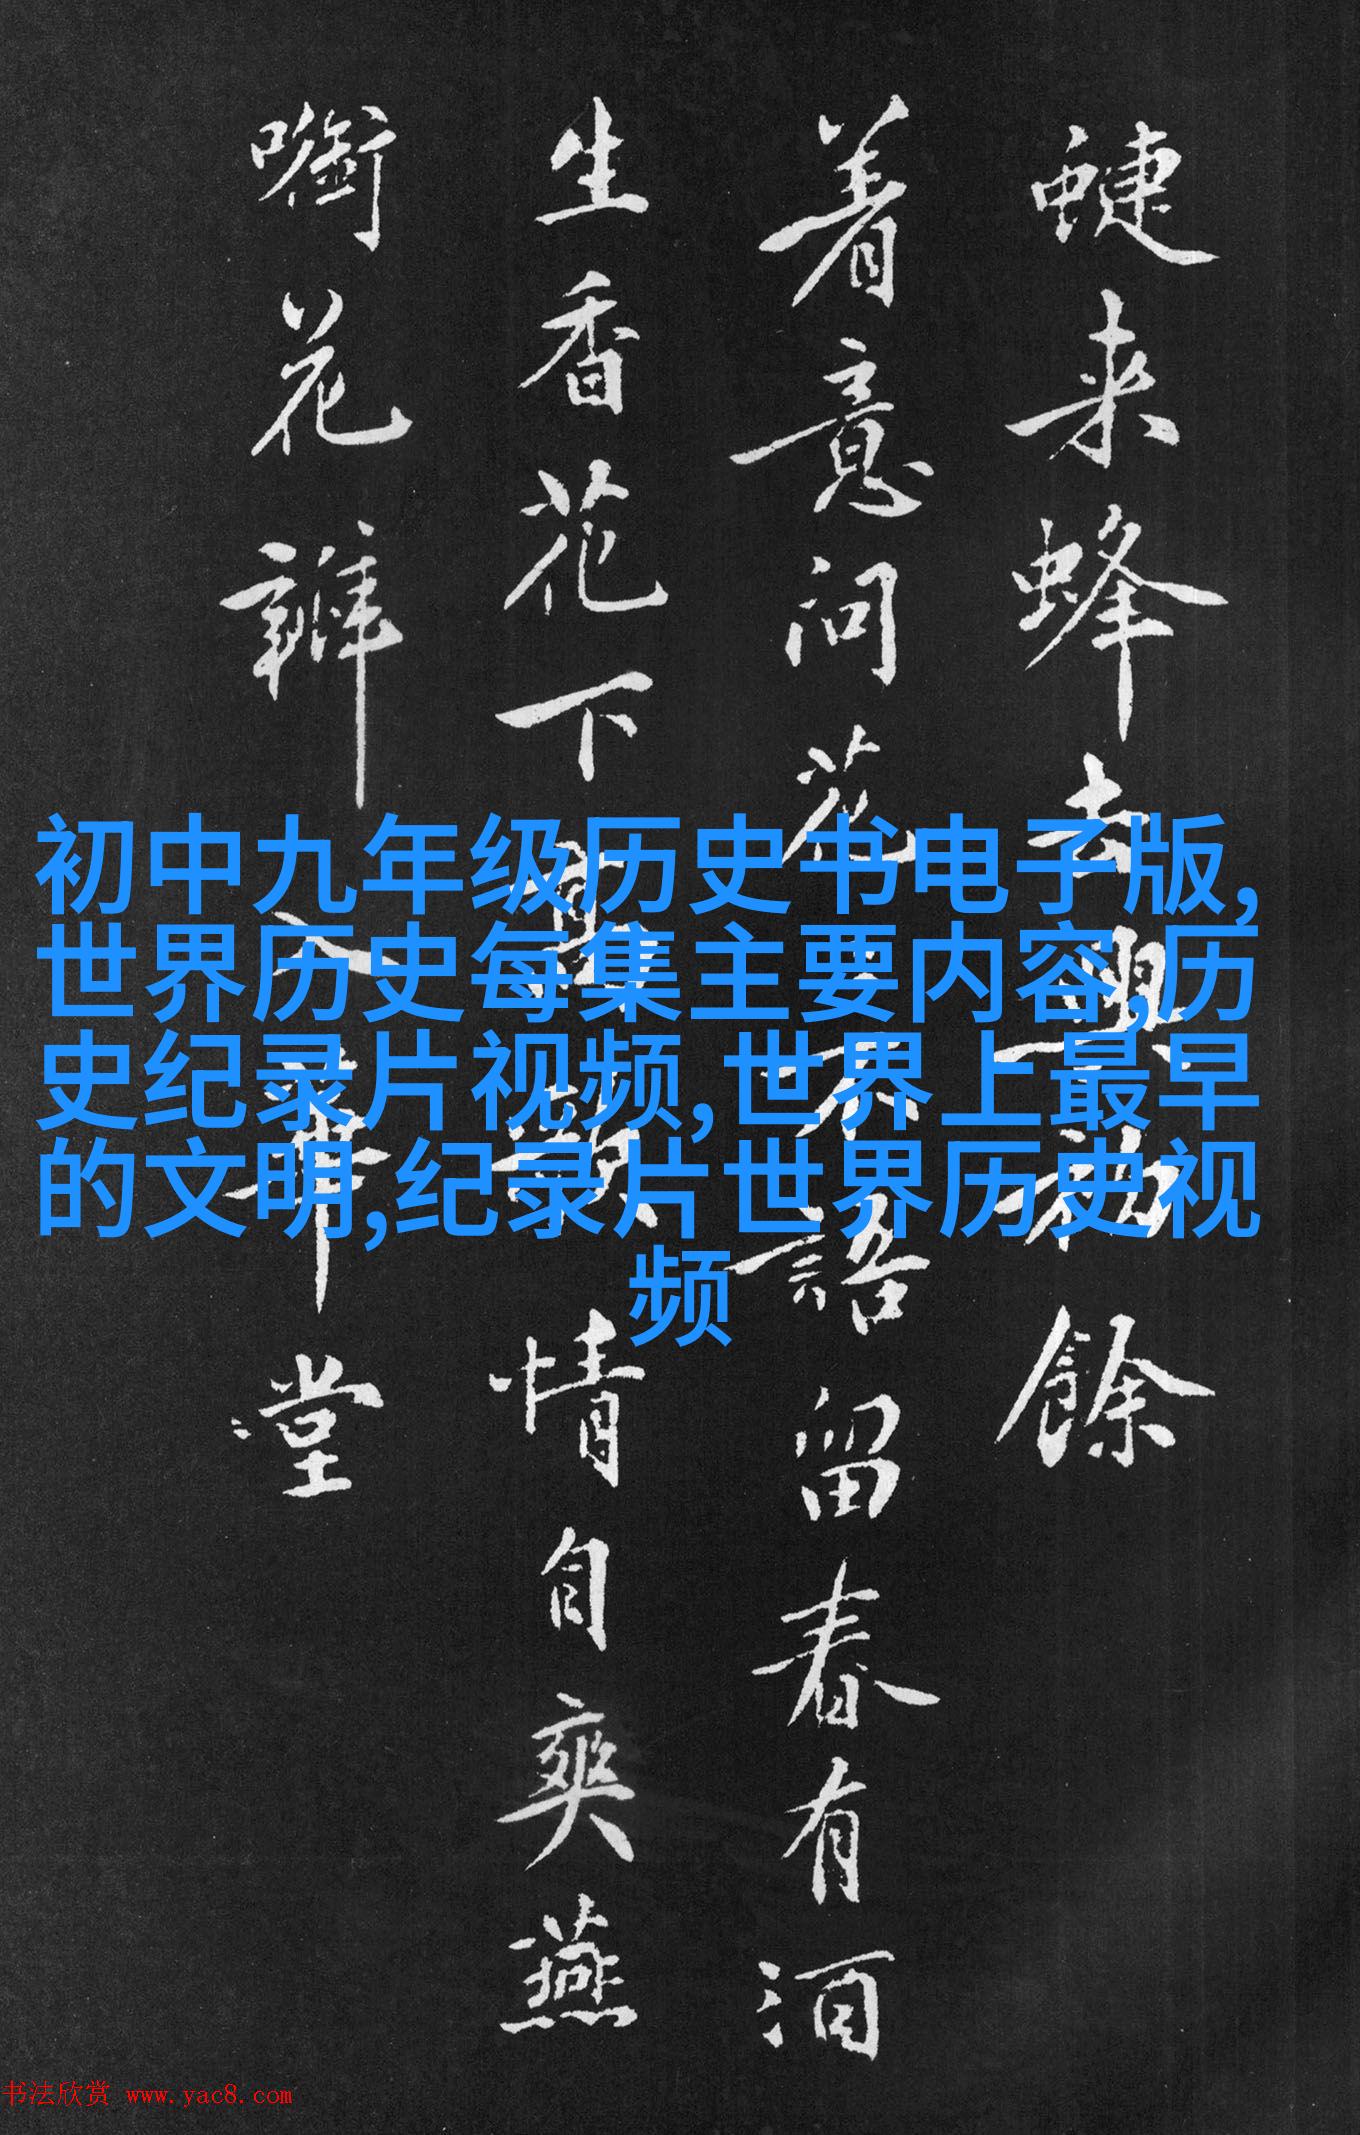 蜨来蜂去興初餘
着意问花花不語留春有酒
生香花下情自爽燕
嘟花辦入華堂
初中九年级历史书电子版,
世界历史每集主要内容,历
史纪录片视频,世界上最早
的文明,纪录片世界历史视
频
书法欣赏 www.yac8.com